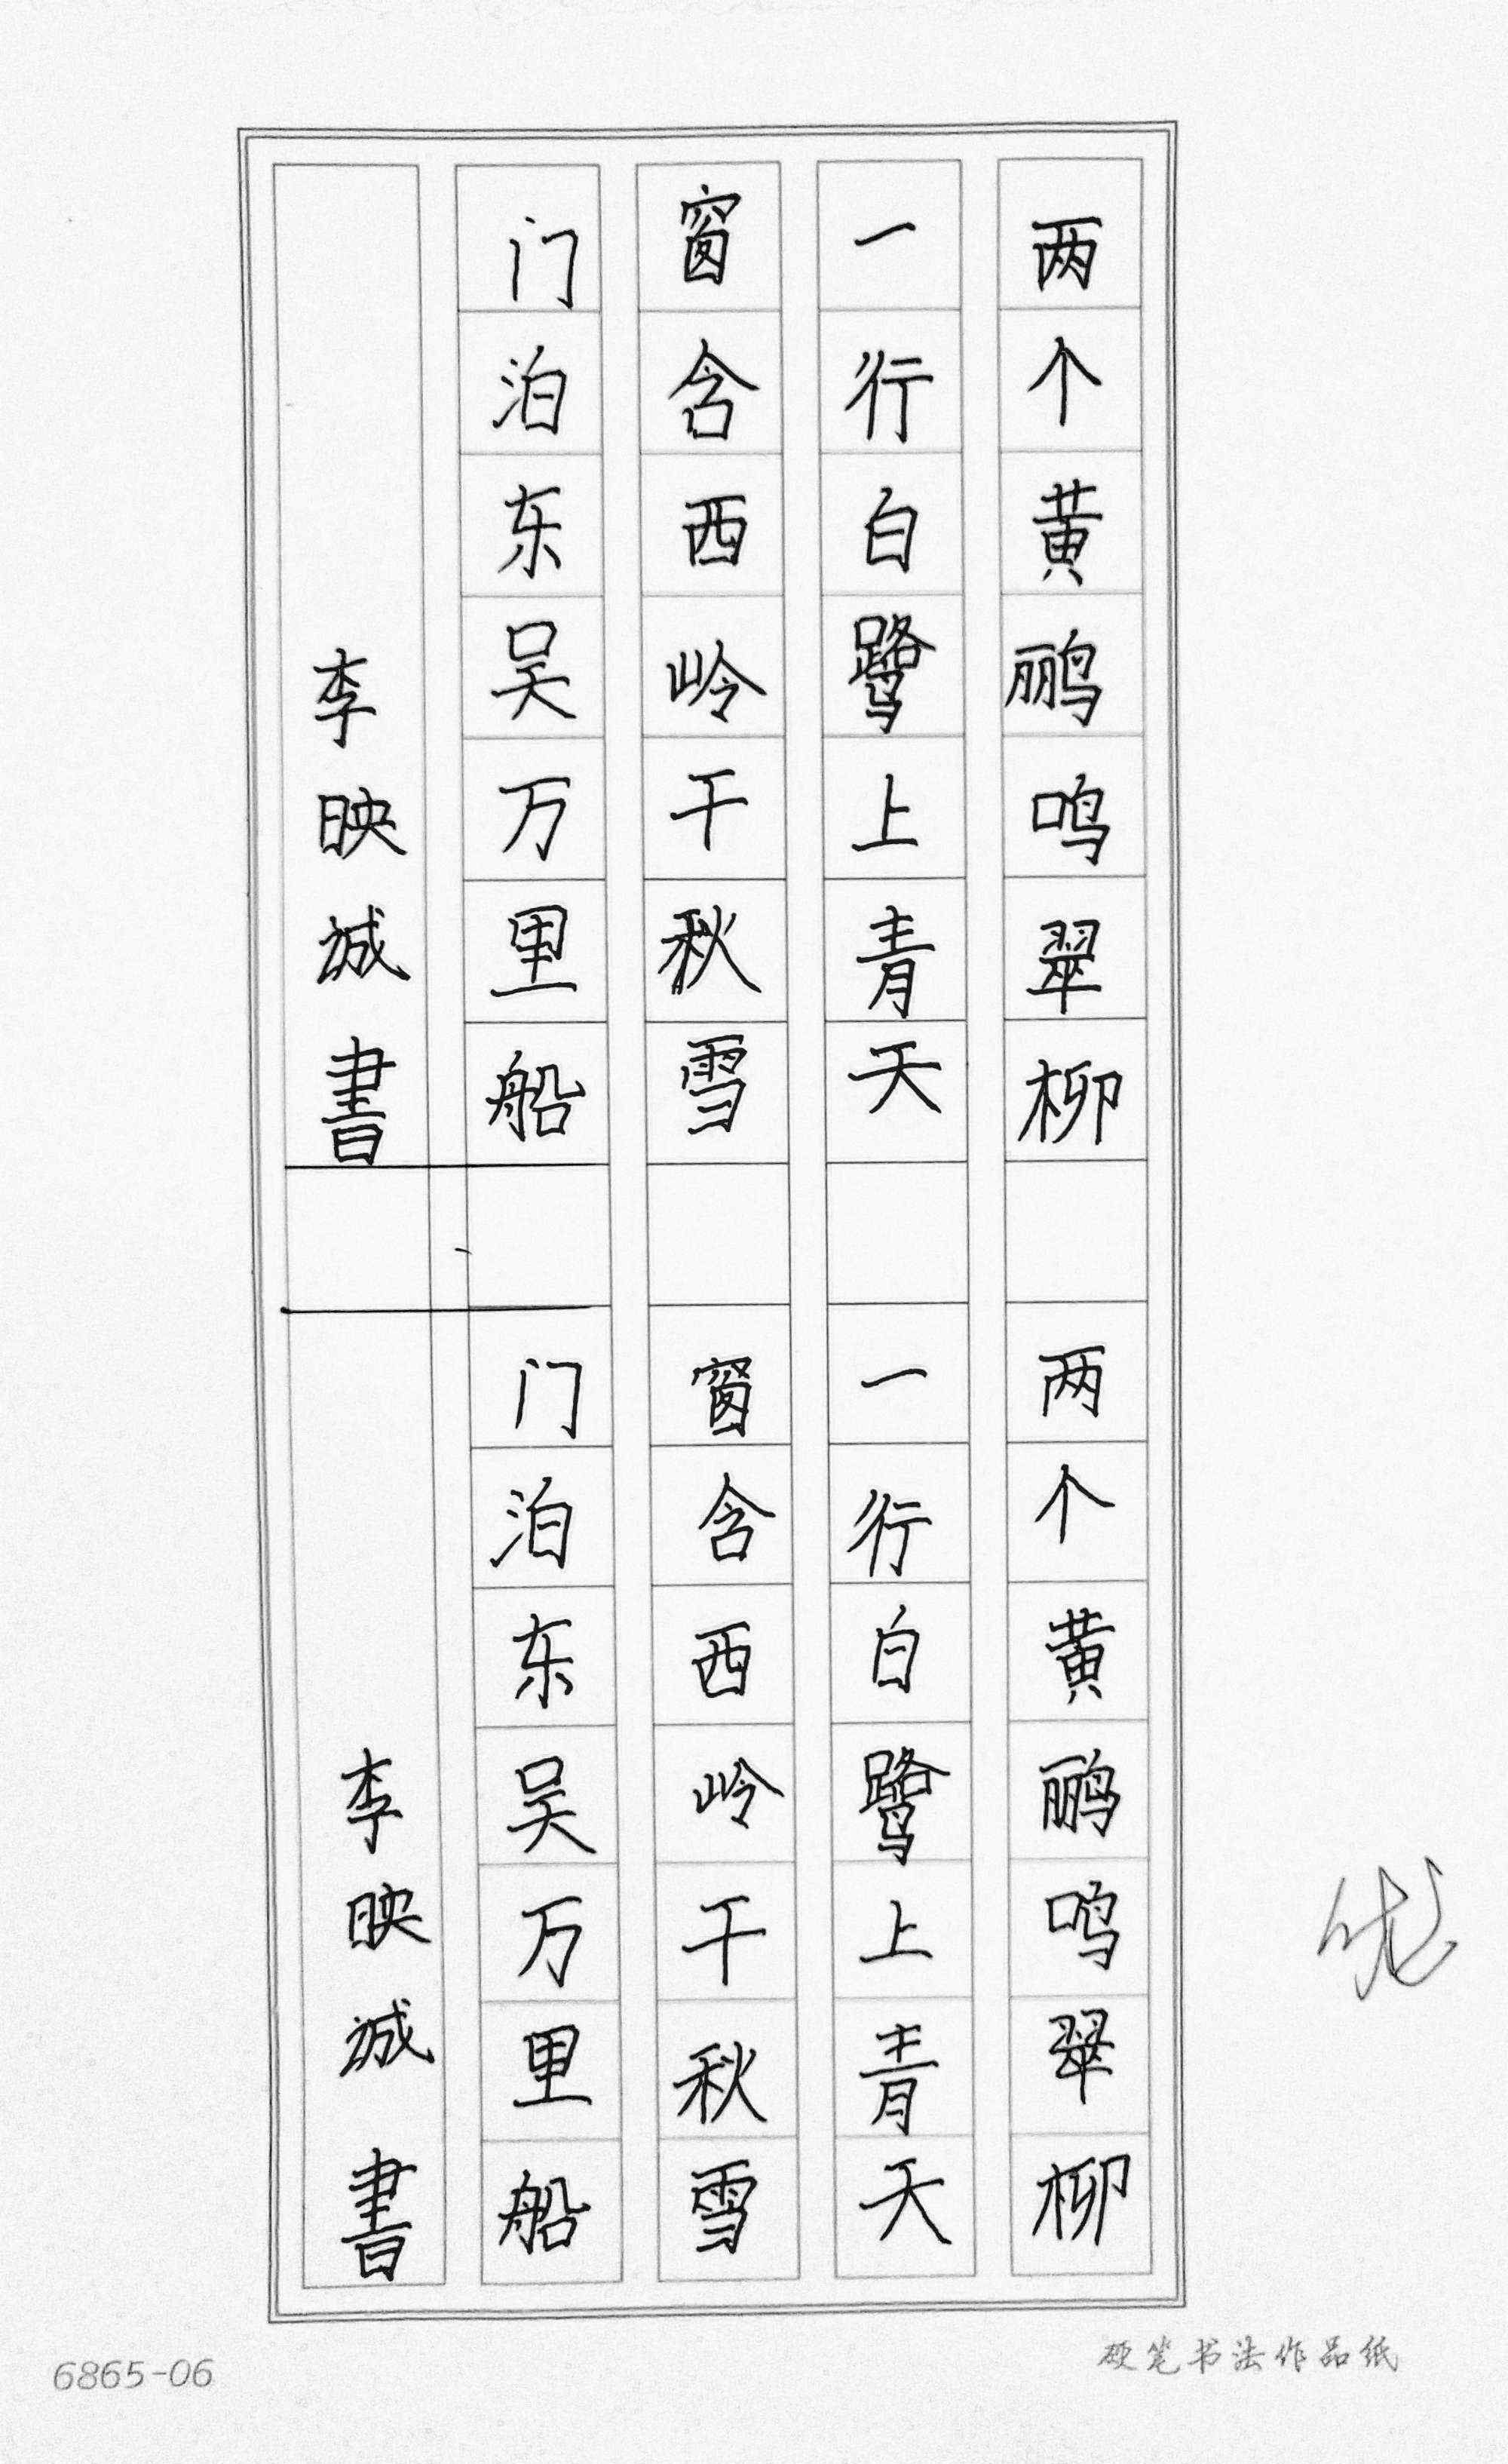 两个黄鹂鸣翠柳
一行白鹭上青天
窗含西岭千秋雪
门泊东吴万里船
李映诚書
两个黄鹂鸣翠柳
一行白鹭上青天
窗含西岭千秋雪
门泊东吴万里船
李映诚書
优
6865-06
硬笔书法作品纸